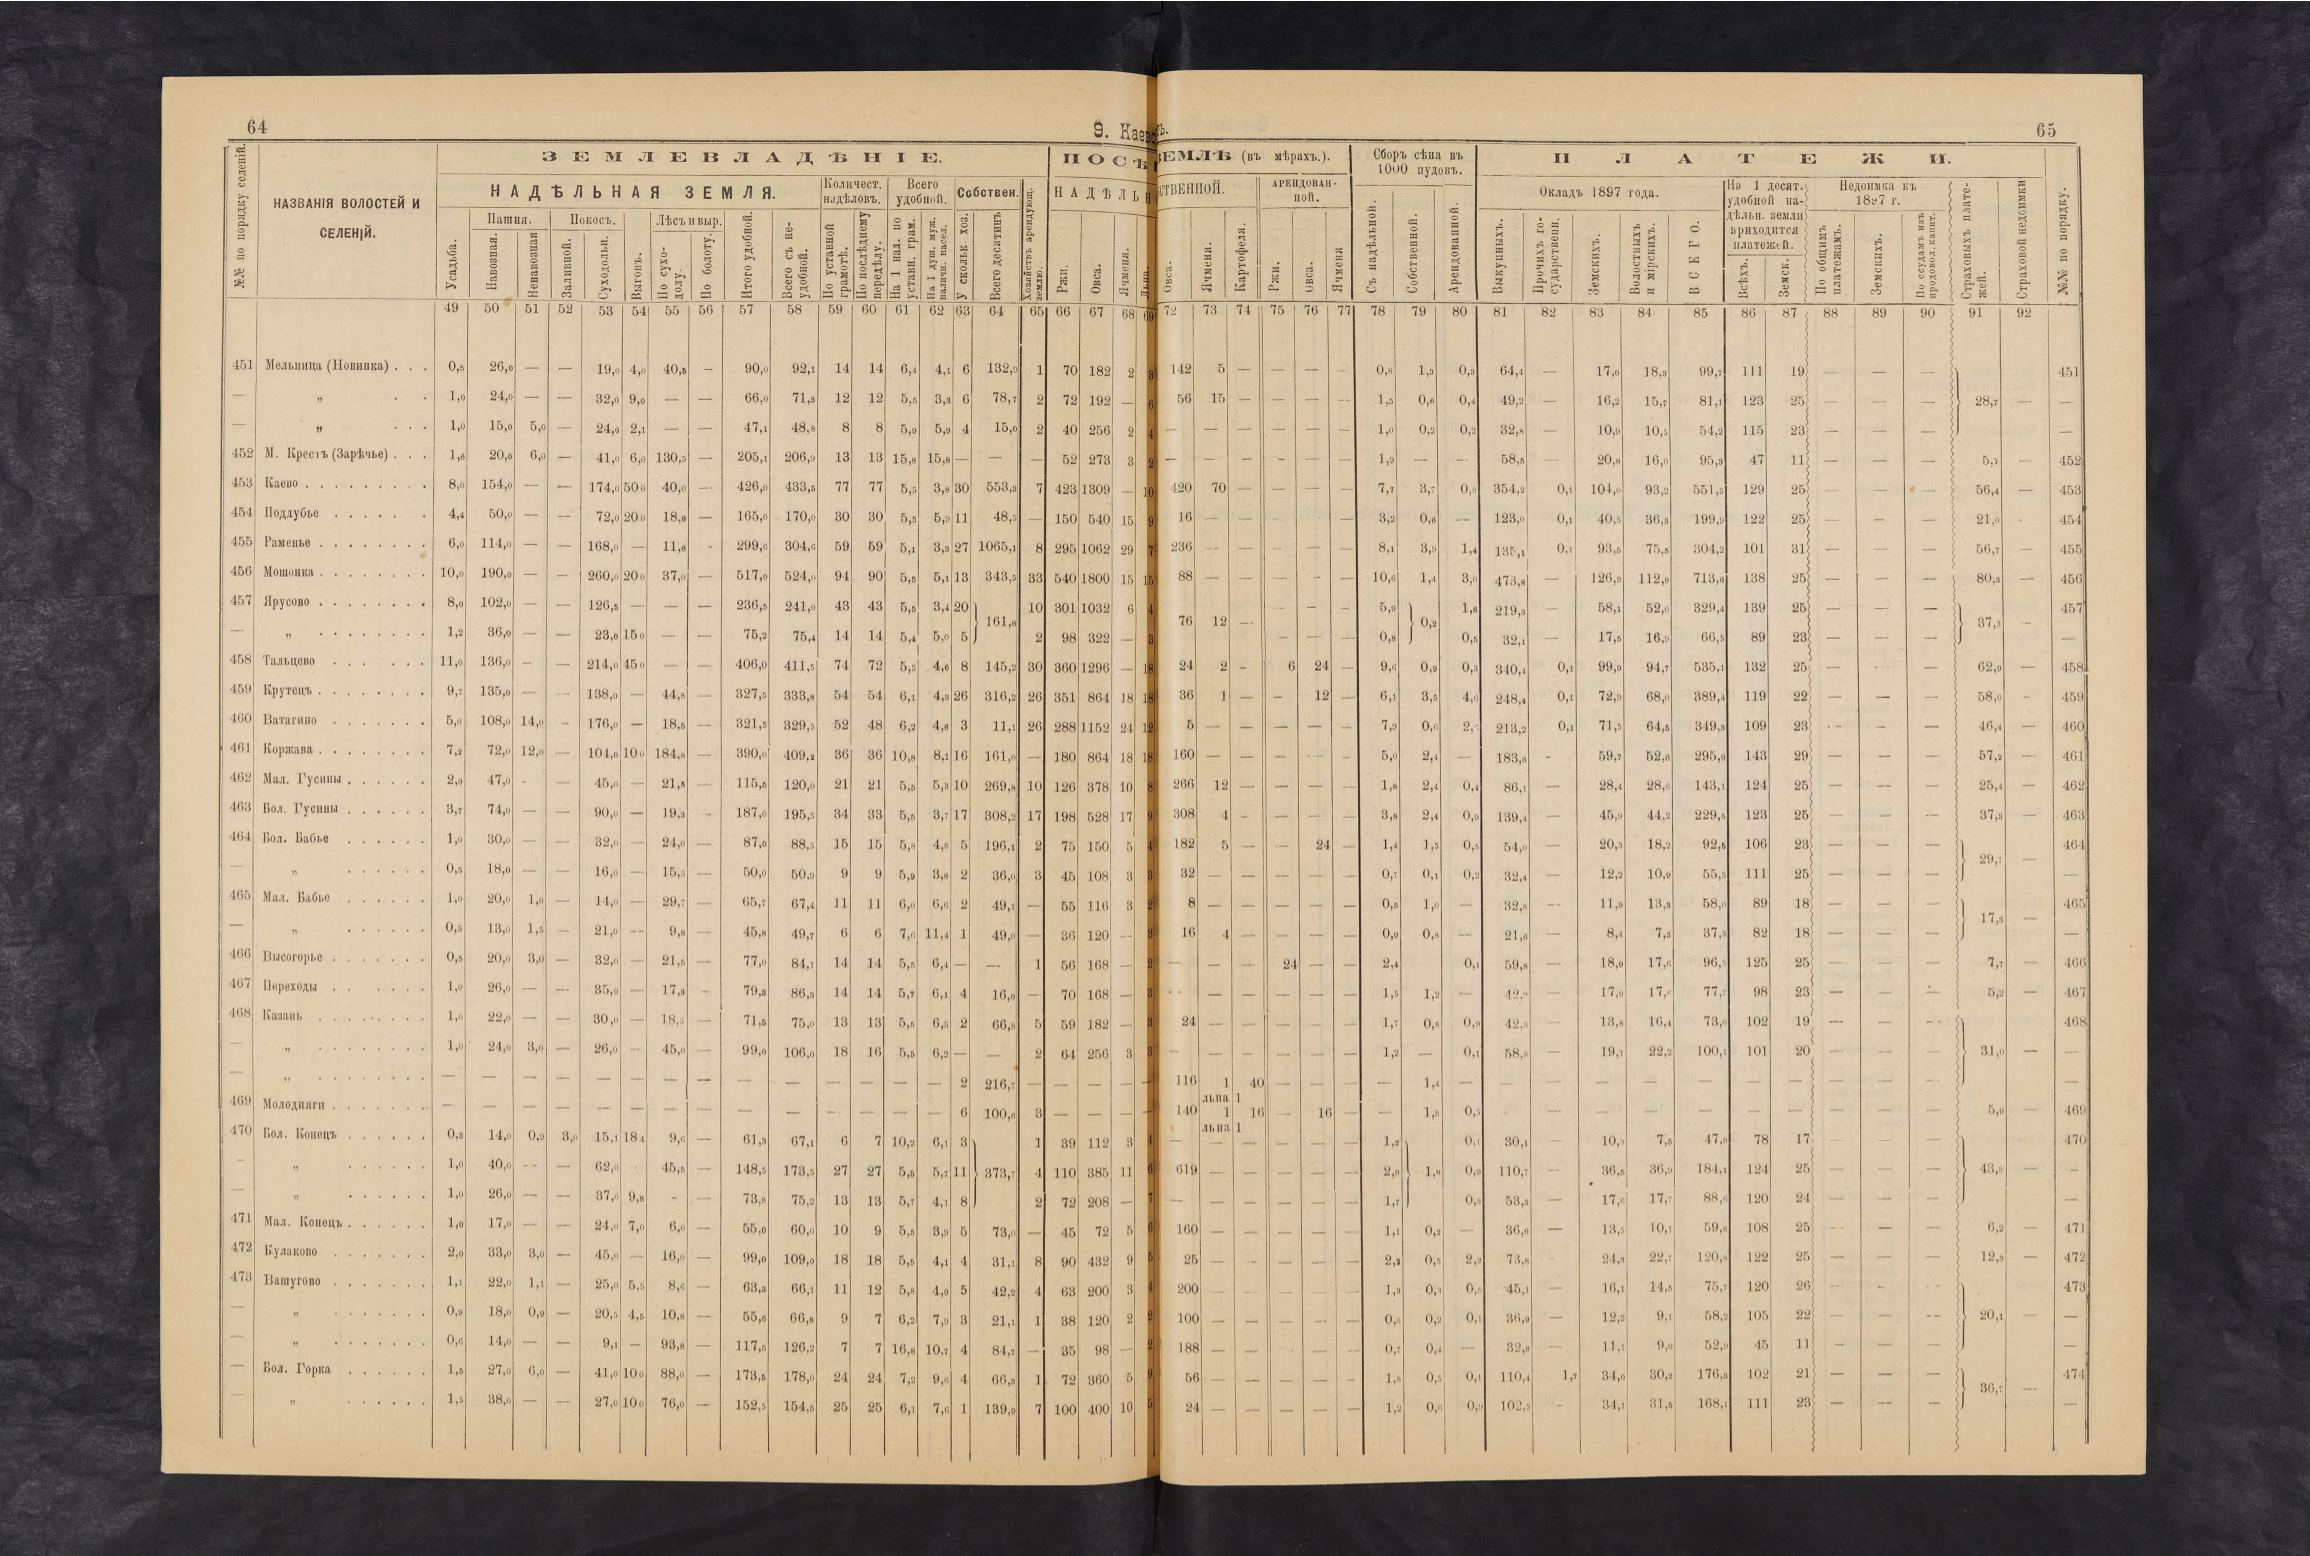 64
9. Каев
ъ.
65
№№ по порядку селеній.
НАЗВАНІЯ ВОЛОСТЕЙ И
СЕЛЕНІЙ.
ЗЕМЛЕВЛАДѢНІЕ.
НАДѢЛЬНАЯ ЗЕМЛЯ.
Количест. надѣловъ.
Всего удобной.
Собствен.
ПОСѢ
НАДѢЛЬН
ЗЕМЛѢ (въ мѣрахъ.).
СТВЕННОЙ.
АРЕНДОВАН-
НОЙ.
Сборъ сѣна въ
1000 пудовъ.
ПЛАТЕЖИ.
Окладъ 1897 года.
На 1 десят.
удобной на-
дѣльн. земли
приходится
платежей.
Недоимка къ
1897 г.
Пашня.
Покосъ.
Лѣсъ и выр.
Усадьба.
Навозная.
Ненавозная
Заливной.
Суходольн.
Выгонъ.
По сухо-
долу.
По болоту.
Итого удобной.
Всего съ не-
удобной.
По уставной
грамотѣ.
По послѣднему
передѣлу.
На 1 нал. по
уставн. грам.
На 1 душ. муж.
наличн. насел.
У скольк хоз.
Всего десятинъ
Хозяйствъ арендующ.
землю.
Ржи.
Овса.
Ячменя.
Льна.
Овса.
Ячменя.
Картофеля.
Ржи.
Овса.
Ячменя
Съ надѣльной.
Собственной.
Арендованной.
Выкупныхъ.
Прочихъ го-
сударственн.
Земскихъ.
Волостныхъ
и мірскихъ.
ВСЕГО.
Всѣхъ.
Земск.
По общимъ
платежамъ.
Земскихъ.
По ссудамъ изъ
продовол. капит.
Страховыхъ плате-
жей.
Страховой недоимки
№№ по порядку.
49 50 51 52 53 54 55 56 57 58 59 60 61 62 63 64 65 66 67 68 69 72 73 74 75 76 77 78 79 80 81 82 83 84 85 86 87 88 89 90 91 92
451 Мельница (Новинка) . . . 0,5 26,0 — — 19,0 4,0 40,5 — 90,0 92,1 14 14 6,4 4,1 6 132,9 1 70 182 2 3 142 5 — — — — 0,8 1,3 0,3 64,4 — 17,0 18,3 99,7 111 19 — — — 451
— „ . . 1,0 24,0 — — 32,0 9,0 — — 66,0 71,3 12 12 5,5 3,3 6 78,7 2 72 192 — 6 56 15 — — — — 1,5 0,6 0,4 49,2 — 16,2 15,7 81,1 123 25 — — — 28,7 — —
— „ . . . 1,0 15,0 5,0 — 24,0 2,1 — — 47,1 48,8 8 8 5,9 5,9 4 15,0 2 40 256 2 4 — — — — — — 1,0 0,2 0,2 32,8 — 10,9 10,5 54,2 115 23 — — — —
452 М. Крестъ (Зарѣчье) . . . 1,6 20,0 6,0 — 41,0 6,0 130,5 — 205,1 206,9 13 13 15,8 15,8 — — — 52 273 3 2 — — — — — — 1,9 — — 58,5 — 20,8 16,0 95,3 47 11 — — — 5,7 — 452
453 Каево . . . . . . . . . 8,0 154,0 — — 174,0 50 0 40,0 — 426,0 433,5 77 77 5,5 3,8 30 553,3 7 423 1309 — 10 420 70 — — — — 7,7 3,7 0,8 354,2 0,1 104,0 93,2 551,5 129 25 — — — 56,4 — 453
454 Поддубье . . . . . . 4,4 50,0 — — 72,0 20 0 18,6 — 165,0 170,0 30 30 5,5 5,9 11 48,5 — 150 540 15 9 16 — — — — — 3,2 0,6 — 123,0 0,1 40,5 36,3 199,9 122 25 — — — 21,0 - 454
455 Раменье . . . . . . . . 6,0 114,0 — — 168,0 — 11,6 - 299,6 304,6 59 59 5,1 3,3 27 1065,1 8 295 1062 29 7 236 — — — — — 8,1 3,9 1,4 135,1 0,1 93,5 75,5 304,2 101 31 — — — 56,7 — 455
456 Мошонка . . . . . . . . 10,0 190,0 — - 260,0 20 0 37,0 — 517,0 524,0 94 90 5,5 5,1 13 343,5 33 540 1800 15 15 88 — — — - — 10,6 1,4 3,0 473,8 — 126,9 112,9 713,6 138 25 — — — 80,3 — 456
457 Ярусово . . . . . . . . 8,0 102,0 — — 126,5 — — — 236,5 241,0 43 43 5,5 3,4 20 10 301 1032 6 4 5,9 1,8 219,3 — 58,1 52,0 329,4 139 25 — — — 457
— „ . . . . . . . . 1,2 36,0 — — 23,0 15 0 — — 75,2 75,4 14 14 5,4 5,0 5 161,6 2 98 322 — 3 76 12 — — — — 0,8 0,2 0,5 32,1 — 17,5 16,9 66,5 89 23 — — — 37,3 — —
458 Тальцево . . . . . . 11,0 136,0 — — 214,0 45 0 — — 406,0 411,5 74 72 5,5 4,6 8 145,2 30 360 1296 — 18 24 2 - 6 24 — 9,6 0,9 0,3 340,4 0,1 99,9 94,7 535,1 132 25 — - — 62,9 — 458
459 Крутецъ . . . . . . . . 9,7 135,0 — — 138,0 — 44,8 — 327,5 333,8 54 54 6,1 4,3 26 316,2 26 351 864 18 18 36 1 — - 12 — 6,1 3,5 4,6 248,4 0,1 72,9 68,0 389,4 119 22 — — — 58,0 - 459
460 Ватагино . . . . . . . 5,0 108,0 14,0 - 176,0 — 18,5 — 321,5 329,5 52 48 6,2 4,6 3 11,1 26 288 1152 24 12 5 — — — — — 7,9 0,6 213,2 0,1 71,5 64,5 349,3 109 23 - — — 46,4 — 460
461 Коржава . . . . . . . . 7,2 72,0 12,0 — 104,0 10 0 184,8 — 390,0 409,2 36 36 10,8 8,1 16 161,0 — 180 864 18 18 160 — — — — — 5,0 2,4 — 183,6 - 59,7 52,6 295,9 143 29 — — — 57,2 — 461
462 Мал. Гусины . . . . . . 2,0 47,0 - — 45,0 — 21,5 — 115,5 120,0 21 21 5,5 5,3 10 269,8 10 126 378 10 8 266 12 — — — — 1,8 2,4 0,4 86,1 — 28,4 28,6 143,1 124 25 — — — 25,4 — 462
463 Бол. Гусины . . . . . . 3,7 74,0 — — 90,0 — 19,3 - 187,0 195,5 34 33 5,5 3,7 17 308,2 17 198 528 17 9 308 4 — — — — 3,8 2,4 0,9 139,4 — 45,9 44,2 229,5 123 25 — — — 37,3 — 463
464 Бол. Бабье . . . . . . 1,0 30,0 — — 32,0 — 24,0 — 87,0 88,5 15 15 5,8 4,8 5 196,1 2 75 150 5 4 182 5 — — 24 — 1,4 1,5 0,5 54,0 — 20,3 18,2 92,5 106 23 — — — 464
— „ . . . . . . 0,5 18,0 — — 16,0 — 15,5 — 50,0 50,9 9 9 5,9 3,8 2 36,0 3 45 108 3 3 32 — — — — — 0,7 0,1 0,2 32,4 — 12,2 10,9 55,5 111 25 — — — 29,7 — —
465 Мал. Бабье . . . . . . 1,0 20,0 1,0 — 14,0 — 29,7 — 65,7 67,4 11 11 6,0 6,6 2 49,1 — 55 116 3 2 8 — — — — — 0,5 1,0 — 32,8 — 11,9 13,3 58,0 89 18 — — — 465
— „ . . . . . . 0,5 13,0 1,5 — 21,0 — 9,8 — 45,8 49,7 6 6 7,6 11,4 1 49,0 — 36 120 — 3 16 4 — — — — 0,9 0,8 — 21,6 — 8,4 7,3 37,3 82 18 — — — 17,3 — —
466 Высогорье . . . . . . . 0,5 20,0 3,0 — 32,0 — 21,5 — 77,0 84,1 14 14 5,5 6,4 — — 1 56 168 — 2 — — — 24 — — 2,4 0,1 59,8 — 18,9 17,6 96,3 125 25 — — — 7,7 — 466
467 Переходы . . . . . . . 1,0 26,0 — — 35,0 — 17,3 — 79,3 86,3 14 14 5,7 6,1 4 16,0 — 70 168 — 3 — — — — — — 1,5 1,2 — — 17,9 98 23 — — — 5,2 — 467
468 Казань . . . . . . . . 1,0 22,0 — — 30,0 — 18,5 — 71,5 75,0 13 13 5,5 6,5 2 66,8 5 59 182 — 3 24 — — — — — 1,7 0,8 0,9 42,8 — 13,8 16,4 73,0 102 19 — — — 468
— „ . . . . . . . . 1,0 24,0 3,0 — 26,0 — 45,0 — 99,0 106,0 18 16 5,5 6,2 — — 2 64 256 3 3 — — — — — — 1,2 — 0,1 58,8 — 19,1 22,2 100,1 101 20 — — — 31,0 — —
— „ . . . . . . . . — — — — — — — — — — — — — — 2 216,7 — — — — — 116 1 40 — — — — 1,4 — — — — — — — — — — — —
льна 1
469 Молодняги . . . . . . . — — — — — — — — — — — — — — 6 100,6 3 — — — — 140 1 16 — 16 — — 1,8 0,5 — — — — — — — — — 5,9 — 469
льна 1
470 Бол. Конецъ . . . . . . 0,3 14,0 0,9 3,0 15,1 18 4 9,6 — 61,3 67,1 6 7 10,2 6,1 3 1 39 112 3 4 — — — — — — 1,2 0,1 30,1 — 10,3 7,5 47,9 78 17 — — — 470
- „ . . . . . . 1,0 40,0 - — 62,0 45,5 — 148,5 173,5 27 27 5,5 5,7 11 373,7 4 110 385 11 6 619 — — — — — 2,9 1,9 0,9 110,7 — 36,5 36,9 184,1 124 25 — — — 43,8 — -
— „ . . . . . . 1,0 26,0 — — 37,0 9,8 - — 73,8 75,2 13 13 5,7 4,1 8 2 72 208 — 7 — — — — — — 1,7 0,3 53,3 — 17,6 17,7 88,6 120 24 — — — —
471 Мал. Конецъ . . . . . . 1,0 17,0 — — 24,0 7,0 6,0 — 55,0 60,0 10 9 5,5 3,9 5 73,0 — 45 72 5 6 160 — — — — — 1,1 0,2 — 36,0 — 13,5 10,1 59,6 108 25 - — — 6,2 — 471
472 Кулаково . . . . . . . 2,0 33,0 3,0 — 45,0 — 16,0 — 99,0 109,0 18 18 5,5 4,1 4 31,1 8 90 432 9 5 25 — — — — — 2,2 0,5 2,2 73,8 24,3 22,7 120,8 122 25 — — — 12,3 — 472
473 Вашугово . . . . . . . 1,1 22,0 1,1 — 25,0 5,5 8,6 — 63,3 66,1 11 12 5,8 4,9 5 42,2 4 63 200 3 4 200 — — — — — 1,3 0,3 0,5 45,1 — 16,1 14,5 75,7 120 26 — - — 473
— „ . . . . . . . 0,9 18,0 0,9 — 20,5 4,5 10,8 — 55,6 66,8 9 7 6,2 7,9 3 21,1 1 38 120 2 2 100 — — — — — 0,8 0,2 0,1 36,9 — 12,2 9,1 58,2 105 22 — — — 20,1 — —
— „ . . . . . . . 0,6 14,0 — — 9,1 — 93,8 — 117,5 126,2 7 7 16,8 10,7 4 84,7 — 35 98 — 2 188 — — — — — 0,7 0,4 — 32,8 — 11,1 9,0 52,9 45 11 — — — —
— Бол. Горка . . . . . . 1,5 27,0 6,0 — 41,0 10 0 88,0 — 173,5 178,0 24 24 7,2 9,6 4 66,3 1 72 360 5 9 56 — — — — — 1,8 0,5 0,1 110,4 1,7 34,0 30,2 176,3 102 21 — — — 474
— „ . . . . . . 1,5 38,0 — — 27,0 10 0 76,0 — 152,5 154,5 25 25 6,1 7,6 1 139,9 7 100 400 10 5 24 — — — — — 1,2 0,6 102,5 - 34,1 31,5 168,1 111 23 — — — 36,7 — —